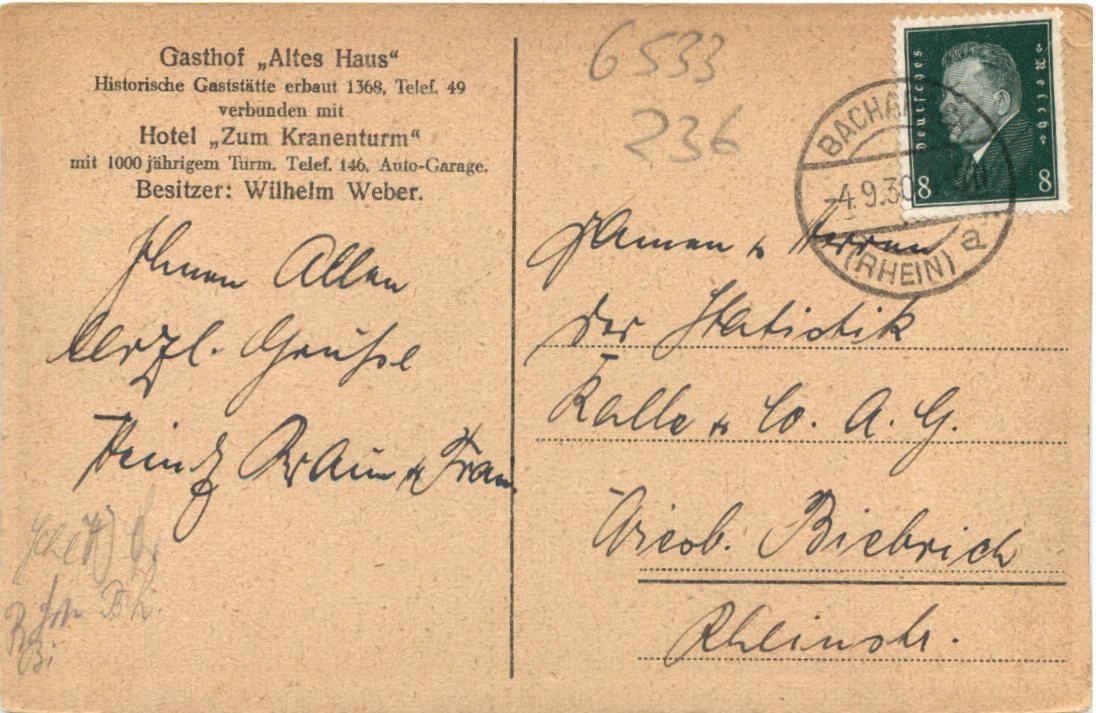 Gasthof „Altes Haus“
Historische Gaststätte erbaut 1368, Telef. 49
verbunden mit
Hotel „Zum Kranenturm“
mit 1000 jährigem Turm. Telef. 146, Auto-Garage.
Besitzer: Wilhelm Weber.
Ihnen Allen
herzl. Grüße
Heinz Braun & Frau.
6533
236
Deutsches Reich
8 8
BACHA
-4.9.30
(RHEIN) a
Damen & Herren
der Statistik
Kalle & Co. A. G.
Wiesb. Biebrich
Rheinstr.